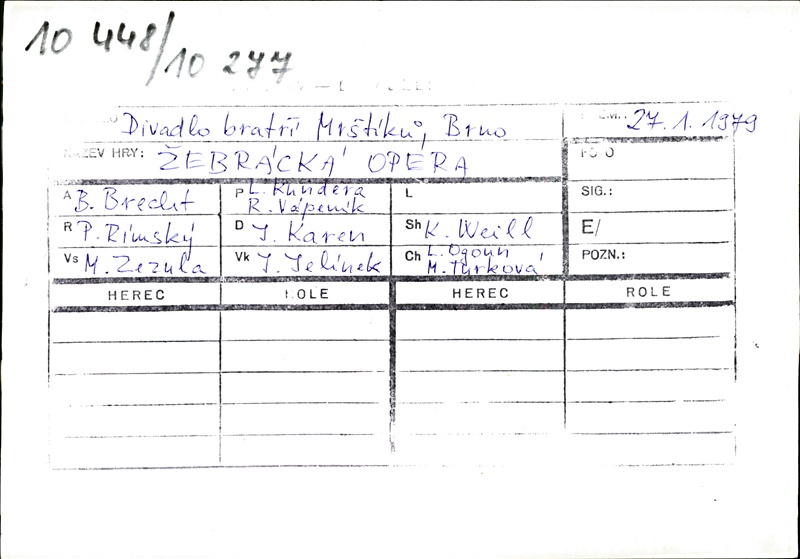 10 448/10 277
Divadlo bratří Mrštíků, Brno 27. 1. 1979
NÁZEV HRY: ŽEBRÁCKÁ OPERA FOTO
A B. Brecht P L. Kundera R. Vápeník L SIG.:
R P. Rímský D J. Karen Sh K. Weill E/
Vs M. Zezula Vk J. Jelínek Ch L. Ogoun M. Turková POZN.:
HEREC ROLE HEREC ROLE